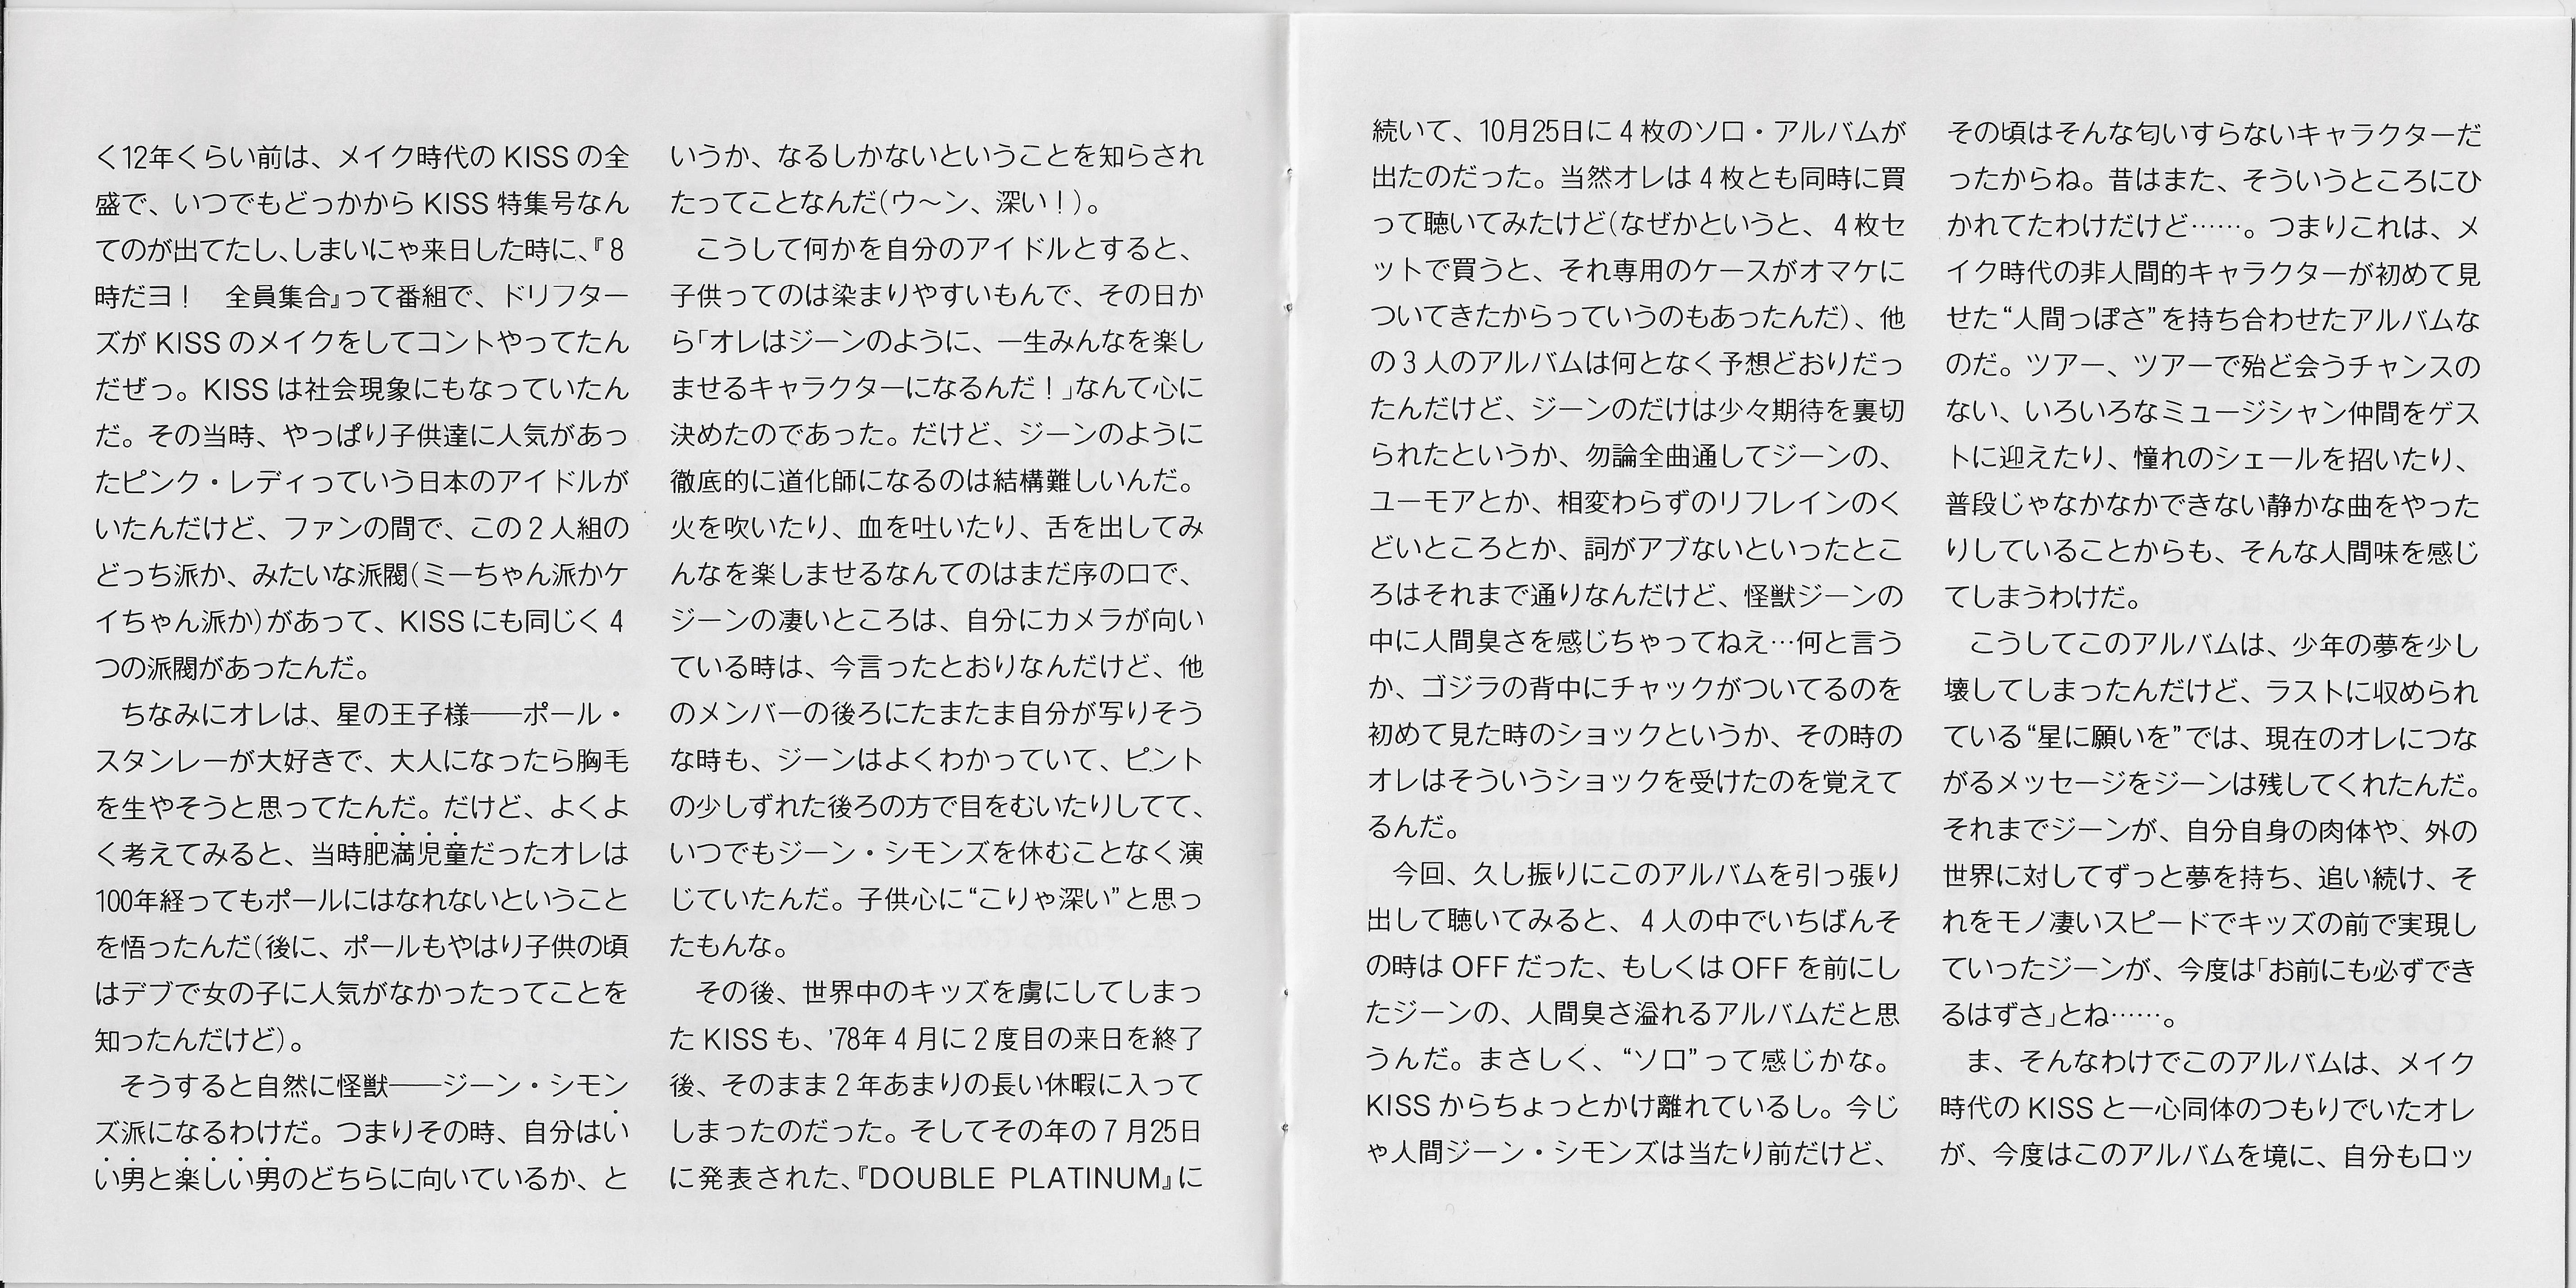 く12年くらい前は、メイク時代の KISS の全
盛で、いつでもどっかから KISS 特集号なん
てのが出てたし、しまいにゃ来日した時に、『8
時だヨ！　全員集合』って番組で、ドリフター
ズが KISS のメイクをしてコントやってたん
だぜっ。KISS は社会現象にもなっていたん
だ。その当時、やっぱり子供達に人気があっ
たピンク・レディっていう日本のアイドルが
いたんだけど、ファンの間で、この2人組の
どっち派か、みたいな派閥(ミーちゃん派かケ
イちゃん派か)があって、KISS にも同じく4
つの派閥があったんだ。
　ちなみにオレは、星の王子様――ポール・
スタンレーが大好きで、大人になったら胸毛
を生やそうと思ってたんだ。だけど、よくよ
く考えてみると、当時肥満児童だったオレは
100年経ってもポールにはなれないということ
を悟ったんだ(後に、ポールもやはり子供の頃
はデブで女の子に人気がなかったってことを
知ったんだけど)。
　そうすると自然に怪獣――ジーン・シモン
ズ派になるわけだ。つまりその時、自分はい
い男と楽しい男のどちらに向いているか、と
いうか、なるしかないということを知らされ
たってことなんだ(ウ〜ン、深い！)。
　こうして何かを自分のアイドルとすると、
子供ってのは染まりやすいもんで、その日か
ら「オレはジーンのように、一生みんなを楽し
ませるキャラクターになるんだ！」なんて心に
決めたのであった。だけど、ジーンのように
徹底的に道化師になるのは結構難しいんだ。
火を吹いたり、血を吐いたり、舌を出してみ
んなを楽しませるなんてのはまだ序の口で、
ジーンの凄いところは、自分にカメラが向い
ている時は、今言ったとおりなんだけど、他
のメンバーの後ろにたまたま自分が写りそう
な時も、ジーンはよくわかっていて、ピント
の少しずれた後ろの方で目をむいたりしてて、
いつでもジーン・シモンズを休むことなく演
じていたんだ。子供心に“こりゃ深い”と思っ
たもんな。
　その後、世界中のキッズを虜にしてしまっ
た KISS も、'78年4月に2度目の来日を終了
後、そのまま2年あまりの長い休暇に入って
しまったのだった。そしてその年の7月25日
に発表された、『DOUBLE PLATINUM』に
続いて、10月25日に4枚のソロ・アルバムが
出たのだった。当然オレは4枚とも同時に買
って聴いてみたけど(なぜかというと、4枚セ
ットで買うと、それ専用のケースがオマケに
ついてきたからっていうのもあったんだ)、他
の3人のアルバムは何となく予想どおりだっ
たんだけど、ジーンのだけは少々期待を裏切
られたというか、勿論全曲通してジーンの、
ユーモアとか、相変わらずのリフレインのく
どいところとか、詞がアブないといったとこ
ろはそれまで通りなんだけど、怪獣ジーンの
中に人間臭さを感じちゃってねえ…何と言う
か、ゴジラの背中にチャックがついてるのを
初めて見た時のショックというか、その時の
オレはそういうショックを受けたのを覚えて
るんだ。
　今回、久し振りにこのアルバムを引っ張り
出して聴いてみると、4人の中でいちばんそ
の時は OFF だった、もしくは OFF を前にし
たジーンの、人間臭さ溢れるアルバムだと思
うんだ。まさしく、“ソロ”って感じかな。
KISS からちょっとかけ離れているし。今じ
ゃ人間ジーン・シモンズは当たり前だけど、
その頃はそんな匂いすらないキャラクターだ
ったからね。昔はまた、そういうところにひ
かれてたわけだけど……。つまりこれは、メ
イク時代の非人間的キャラクターが初めて見
せた“人間っぽさ”を持ち合わせたアルバムな
のだ。ツアー、ツアーで殆ど会うチャンスの
ない、いろいろなミュージシャン仲間をゲス
トに迎えたり、憧れのシェールを招いたり、
普段じゃなかなかできない静かな曲をやった
りしていることからも、そんな人間味を感じ
てしまうわけだ。
　こうしてこのアルバムは、少年の夢を少し
壊してしまったんだけど、ラストに収められ
ている“星に願いを”では、現在のオレにつな
がるメッセージをジーンは残してくれたんだ。
それまでジーンが、自分自身の肉体や、外の
世界に対してずっと夢を持ち、追い続け、そ
れをモノ凄いスピードでキッズの前で実現し
ていったジーンが、今度は「お前にも必ずでき
るはずさ」とね……。
　ま、そんなわけでこのアルバムは、メイク
時代の KISS と一心同体のつもりでいたオレ
が、今度はこのアルバムを境に、自分もロッ